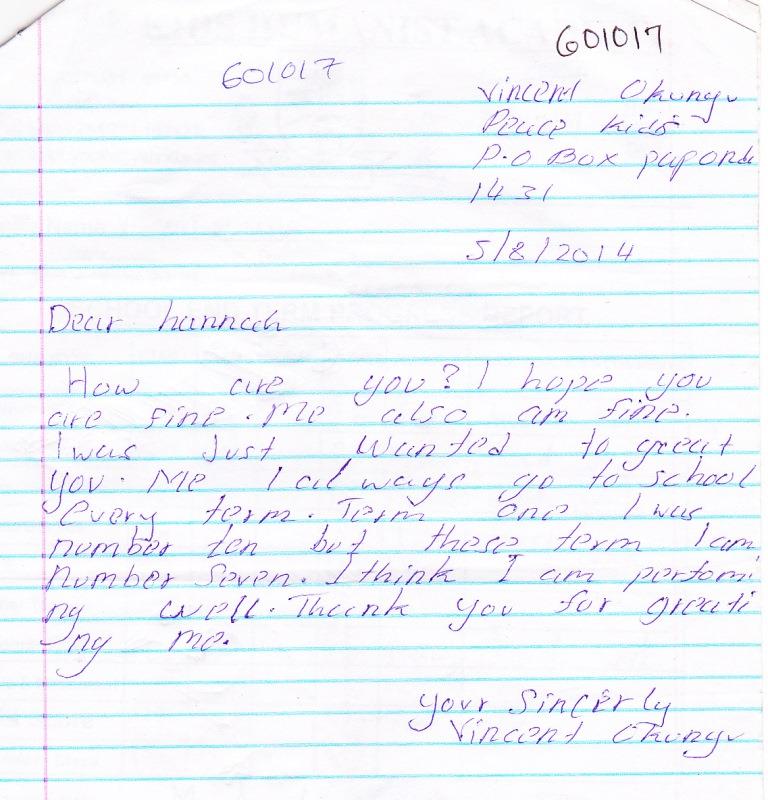 601017
601017
Vincent Okungu
Peace kids
P.O Box paponde
1431
5/8/2014
Dear hannah
How are you? I hope you
are fine. Me also am fine.
I was Just Wanted to great
you. Me I always go to school
every term. Term one I was
number ten but these term I am
Number Seven. I think I am perfomi
ng well. Thank you for greati
ng me.
your Sincerly
Vincent Okungu